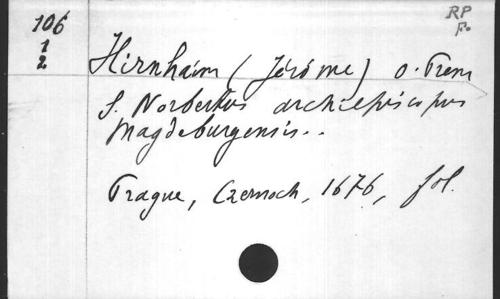 106
1
2
RP
Fo.
Hirnhaim (Jérôme) O. Prem
S. Norbertus archiepiscopus
Magdeburgensis..
Prague, Czernoch, 1676, fol.